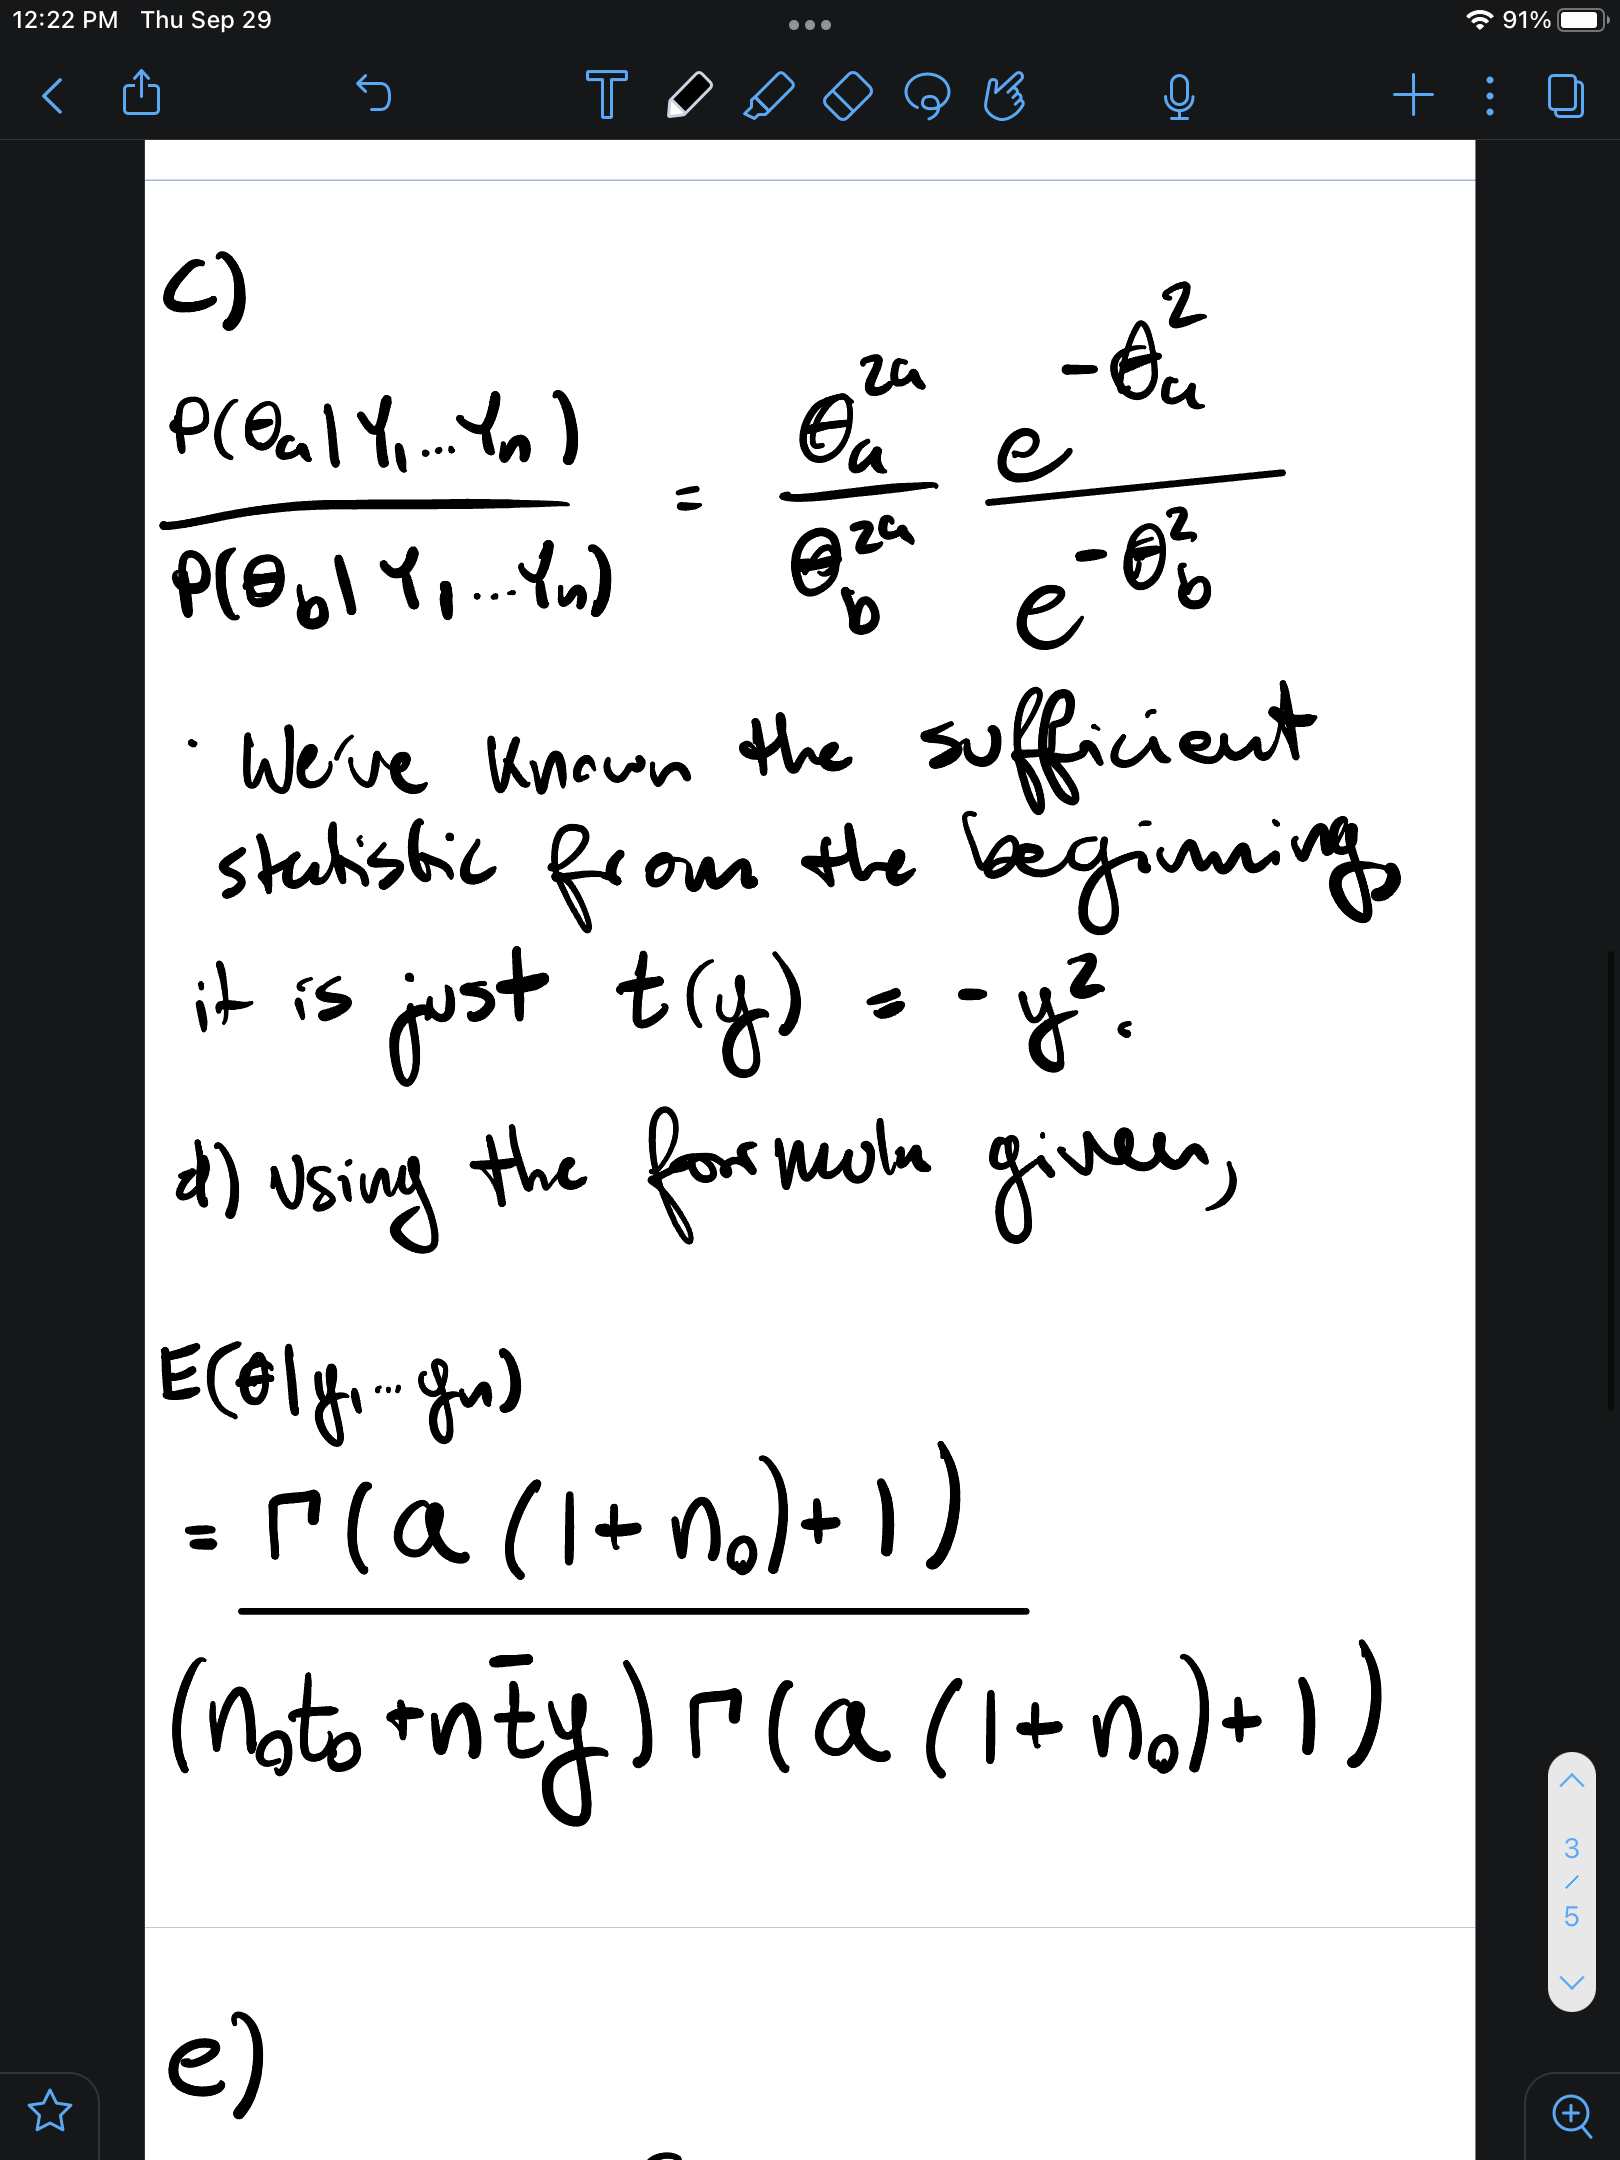 12:22 PM Thu Sep 29 91%
c)
P(θₐ | Y₁...Yₙ) / P(θ_b | Y₁...Yₙ) = θₐ^2a / θ_b^2a e^-θₐ² / e^-θ_b²
· We've known the sufficient
statistic from the beginning,
it is just t(y) = -y².
d) Using the formula given,
E(θ|y₁...yₙ)
= Γ(a(1+n₀)+1)
(n₀t₀ + nt̄y) Γ(a(1+n₀)+1)
3
/
5
e)